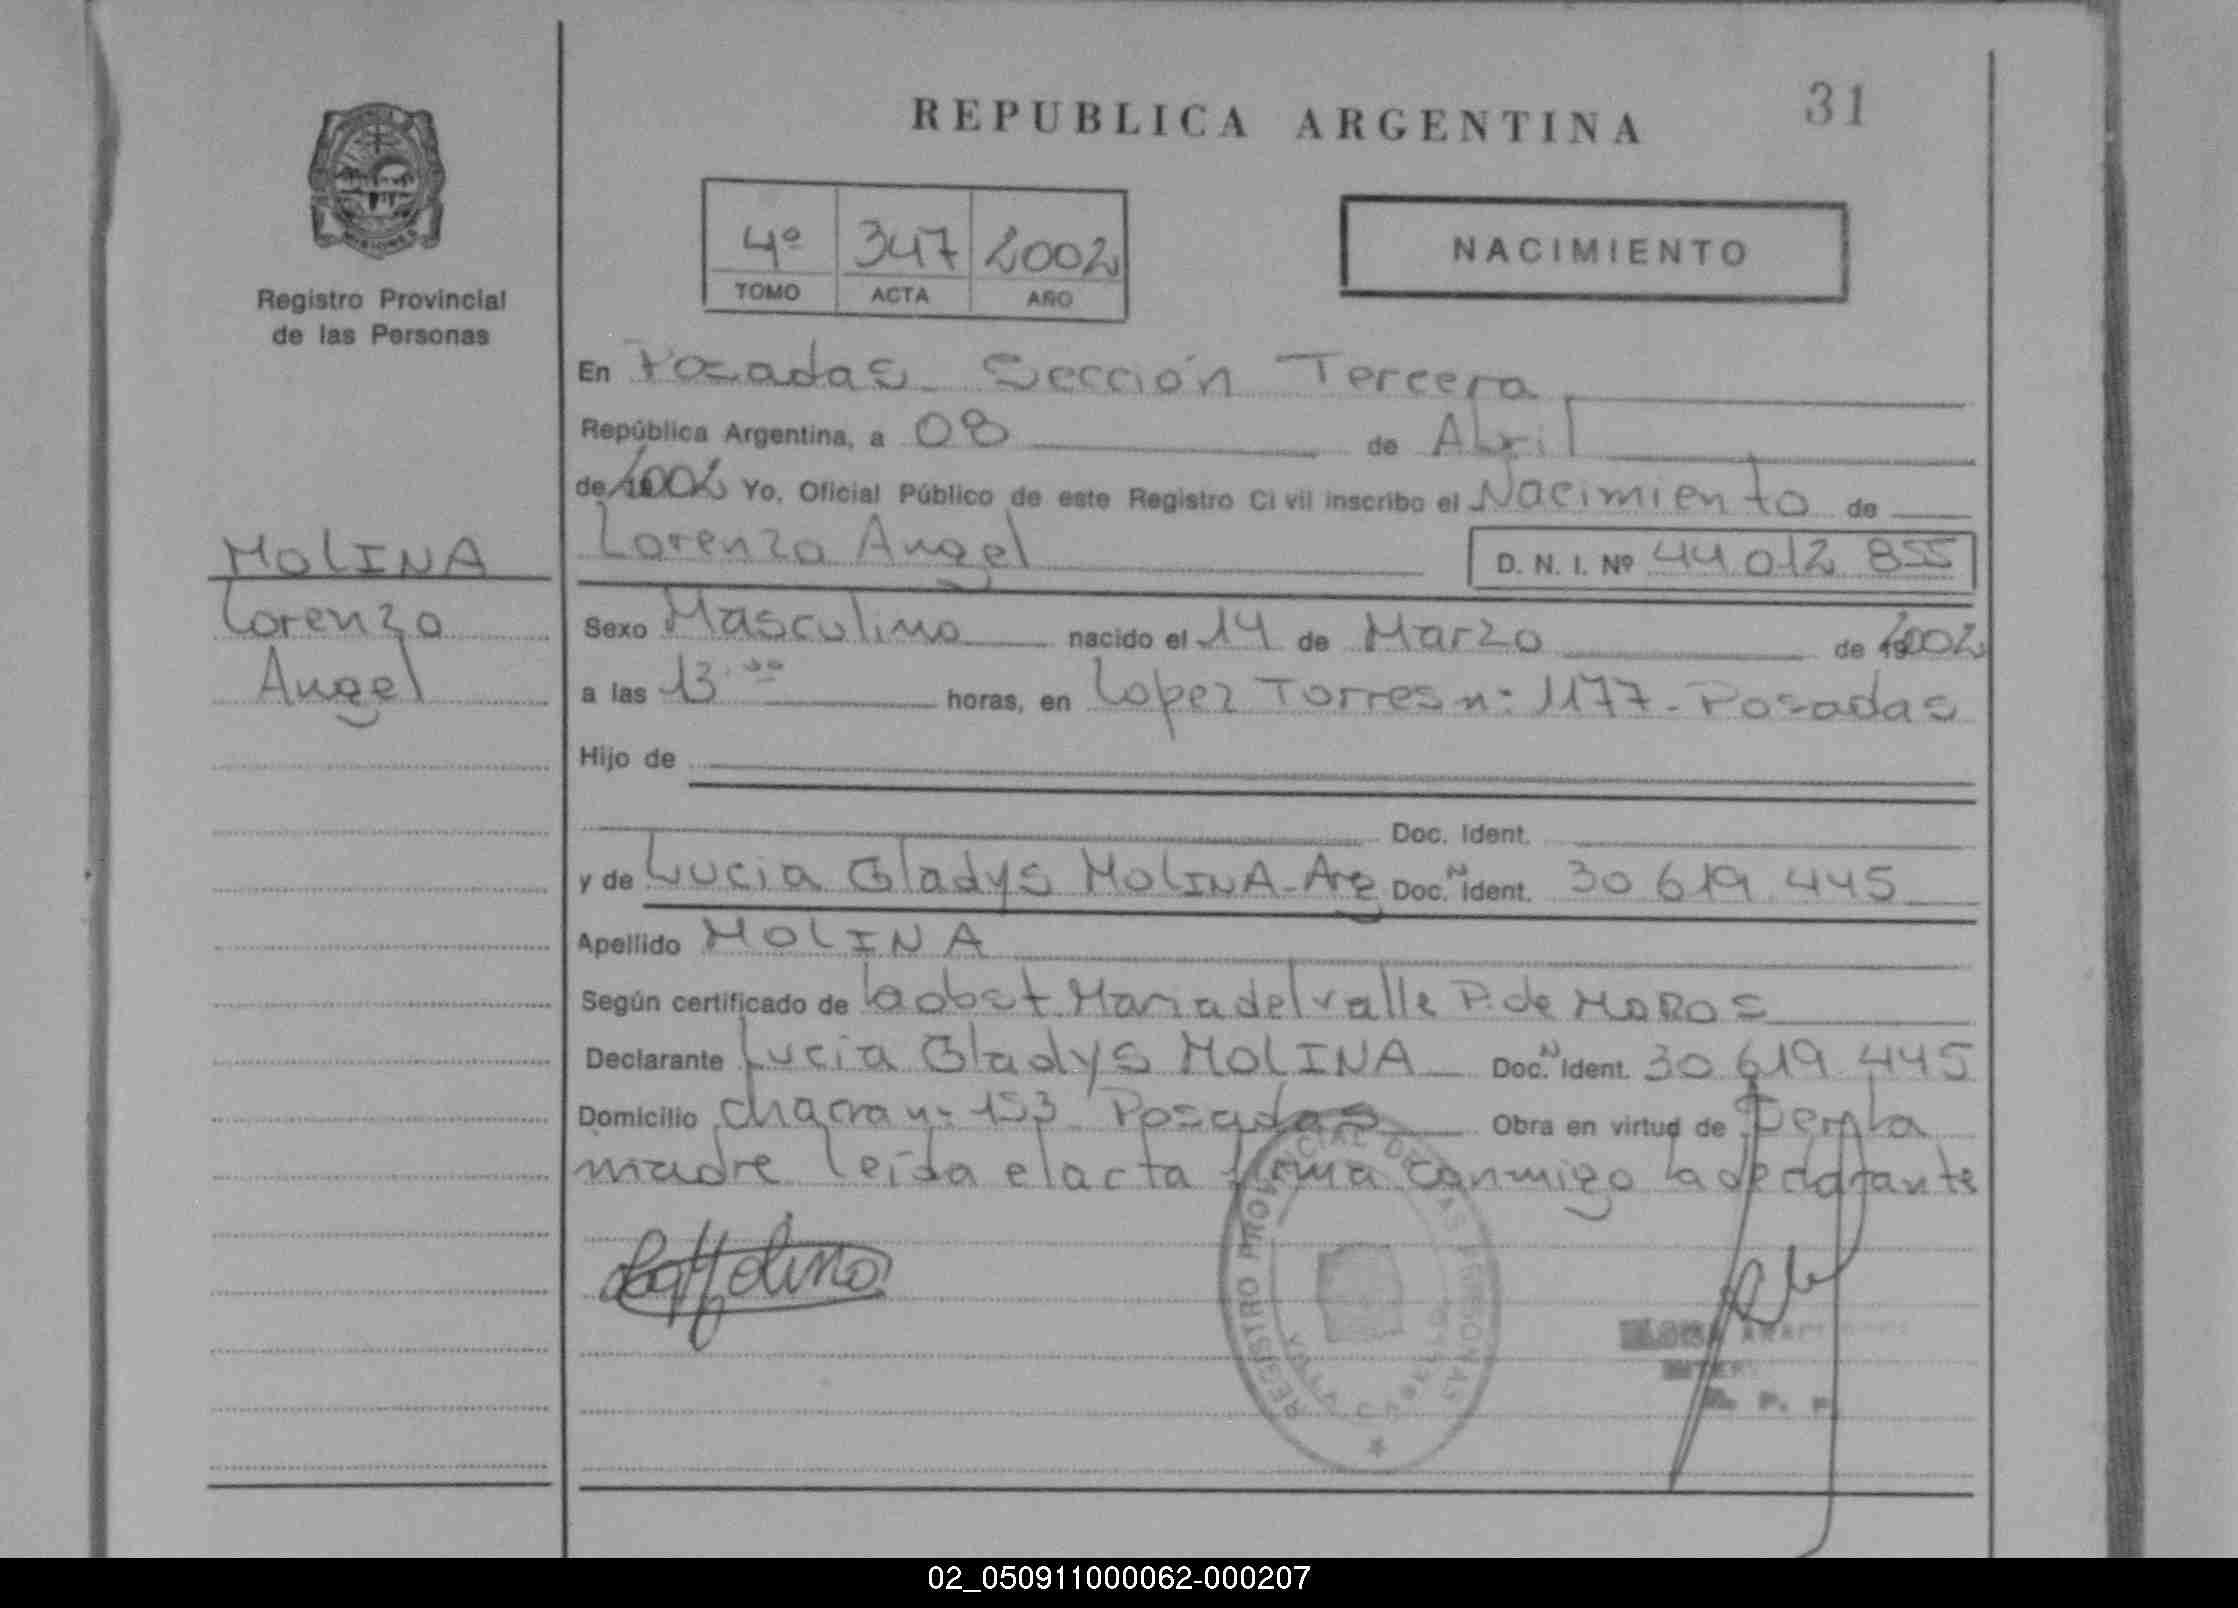 REPUBLICA ARGENTINA
31
MISIONES
Registro Provincial
de las Personas
4º 347 2002
TOMO ACTA AÑO
NACIMIENTO
En Posadas Sección Tercera
República Argentina, a 08 de Abril
de 2002 Yo, Oficial Público de este Registro Civil inscribo el Nacimiento de
MOLINA
Lorenzo Angel D. N. I. Nº 44 012 855
Lorenzo
Angel
Sexo Masculino nacido el 14 de Marzo de 2002
a las 13 horas, en Lopez Torres nº 1177 - Posadas
Hijo de
Doc. Ident.
y de Lucia Gladys MOLINA - Arg Doc. N Ident. 30 619 445
Apellido MOLINA
Según certificado de la obst Maria del valle P. de
Declarante Lucia Gladys MOLINA Doc. N Ident. 30 619 445
Domicilio chacra nº 153 Posadas Obra en virtud de Ser la
madre leída el acta firma conmigo la declarante
REGISTRO PROVINCIAL DE LAS PERSONAS
R. P. P.
02_050911000062-000207